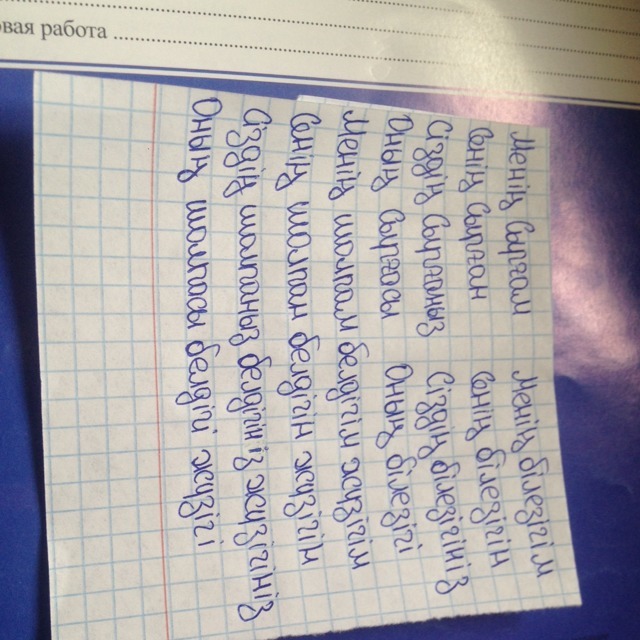 овая работа
Менің сырғам Менің білезігім
Сенің сырған Сенің білезігін
Сіздің сырғаныз Сіздің білезігініз
Оның сырғасы Оның білезігі
Менің шолпам белдігім жүзігім
Сенің шолпан белдігін жүзігін
Сіздің шолпаныз белдігініз жүзігініз
Оның шолпасы белдігі жүзігі